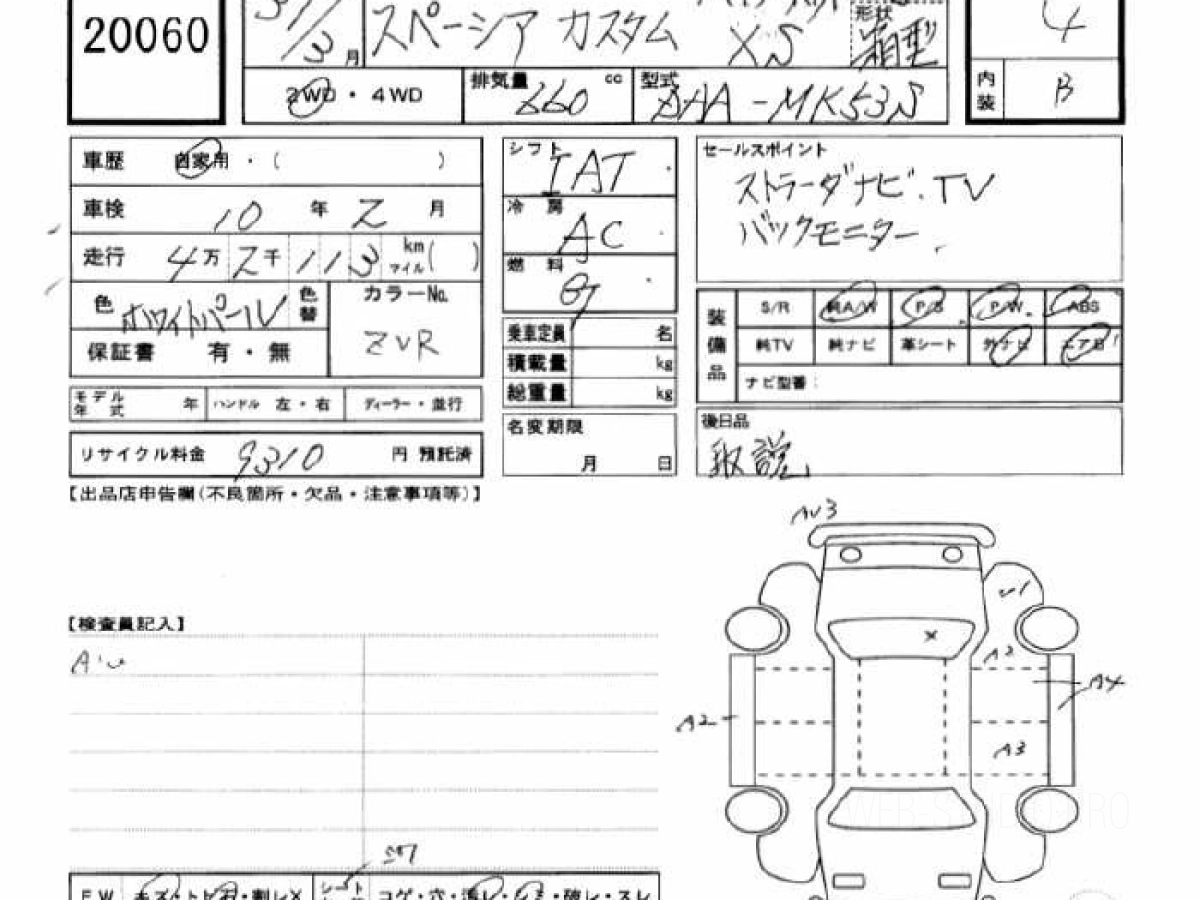 20060
31/3月
スペーシア カスタム
XS
形状
箱型
4
2WD・4WD
排気量 660 cc
型式 DAA-MK53S
内装 B
車歴 自家用・( )
シフト IAT
セールスポイント
ストラーダナビ.TV
バックモニター
車検 10年2月
冷房 AC
走行 4万2千113km マイル( )
燃料 G
色 ホワイトパール 色替
カラーNo.
ZVR
装備品
S/R 純A/W P/S P/W ABS
純TV 純ナビ 革シート 外ナビ エアB
ナビ型番:
保証書 有・無
乗車定員 名
積載量 kg
総重量 kg
モデル年式 年 ハンドル 左・右 ディーラー・並行
名変期限
月 日
後日品
取説
リサイクル料金 9310 円 預託済
【出品店申告欄(不良箇所・欠品・注意事項等)】
AU3
【検査員記入】
U1
X
A2
A4
A2
A3
FW キズ・トビ石・割レX シート コゲ・穴・濡レ・シミ・破レ・スレ